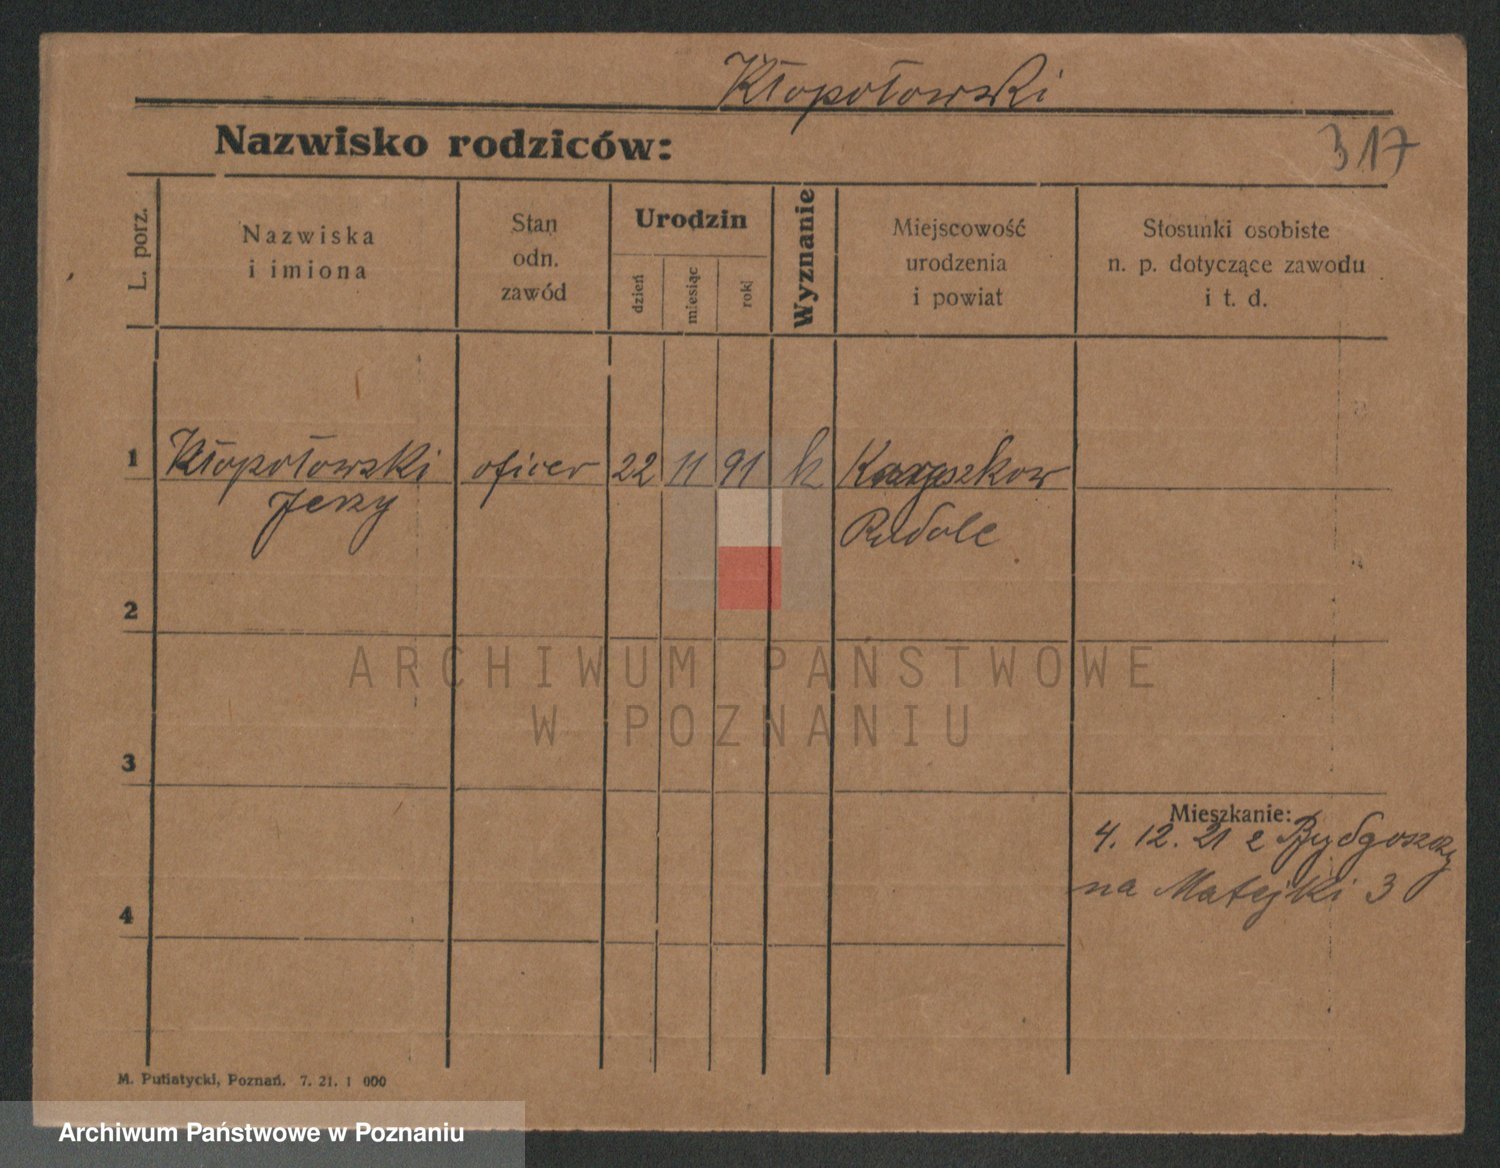 Kłopotowski
317
Nazwisko rodziców:
L. porz.
Nazwiska
i imiona
Stan
odn.
zawód
Urodzin
dzień
miesiąc
rok
Wyznanie
Miejscowość
urodzenia
i powiat
Stosunki osobiste
n. p. dotyczące zawodu
i t. d.
1 Kłopotowski oficer 22 11 91 k
Jerzy
2
ARCHIWUM PAŃSTWOWE
W POZNANIU
3
Mieszkanie:
4. 12. 21 z Bydgoszczy
na Matejki 3
4
M. Putiatycki, Poznań. 7. 21. 1 000
Archiwum Państwowe w Poznaniu